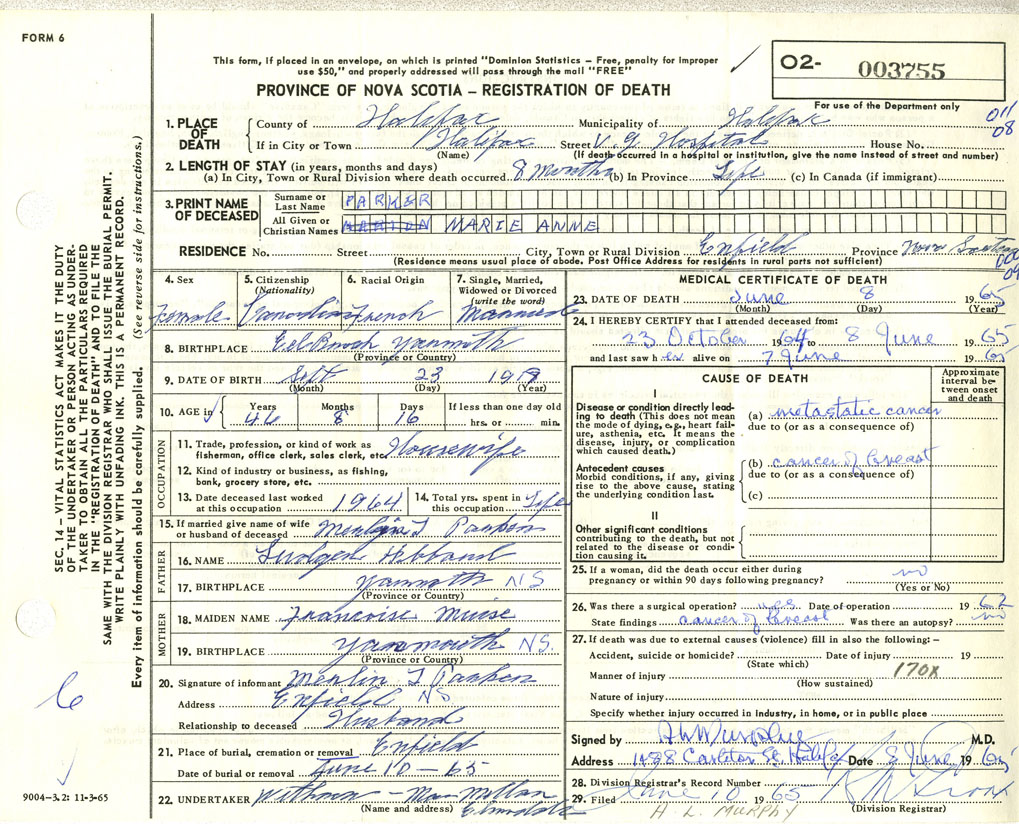 FORM 6
This form, if placed in an envelope, on which is printed "Dominion Statistics – Free, penalty for improper
use $50," and properly addressed will pass through the mail "FREE"
O2- 003755
PROVINCE OF NOVA SCOTIA – REGISTRATION OF DEATH
For use of the Department only
011
08
1. PLACE OF DEATH
County of Halifax Municipality of Halifax
If in City or Town Halifax Street V. G. Hospital House No.
(Name) (If death occurred in a hospital or institution, give the name instead of street and number)
2. LENGTH OF STAY (in years, months and days)
(a) In City, Town or Rural Division where death occurred 8 Months (b) In Province Life (c) In Canada (if immigrant)
3. PRINT NAME OF DECEASED
Surname or Last Name PARKER
All Given or Christian Names MARIE ANNE
RESIDENCE No. Street City, Town or Rural Division Enfield Province Nova Scotia
(Residence means usual place of abode. Post Office Address for residents in rural parts not sufficient)
4. Sex Female
5. Citizenship (Nationality) Canadian
6. Racial Origin French
7. Single, Married, Widowed or Divorced (write the word) Married
8. BIRTHPLACE Eel Brook Yarmouth
(Province or Country)
9. DATE OF BIRTH Sept 23
(Month) (Day) (Year)
10. AGE in Years 46 Months 8 Days 16 If less than one day old hrs. or min.
OCCUPATION
11. Trade, profession, or kind of work as fisherman, office clerk, sales clerk, etc. Housewife
12. Kind of industry or business, as fishing, bank, grocery store, etc.
13. Date deceased last worked at this occupation 1964
14. Total yrs. spent in this occupation Life
15. If married give name of wife or husband of deceased
FATHER
16. NAME
17. BIRTHPLACE Yarmouth NS
(Province or Country)
MOTHER
18. MAIDEN NAME Francoise Muise
19. BIRTHPLACE Yarmouth NS.
(Province or Country)
20. Signature of informant
Address Enfield NS
Relationship to deceased Husband
21. Place of burial, cremation or removal Enfield
Date of burial or removal June 10 – 65
22. UNDERTAKER
(Name and address)
MEDICAL CERTIFICATE OF DEATH
23. DATE OF DEATH June 8 1965
(Month) (Day) (Year)
24. I HEREBY CERTIFY that I attended deceased from:
23 October 1964 to 8 June 1965
and last saw her alive on 7 June 1965
CAUSE OF DEATH
Approximate interval between onset and death
I
Disease or condition directly leading to death (This does not mean the mode of dying, e.g., heart failure, asthenia, etc. It means the disease, injury, or complication which caused death.)
(a) metastatic cancer
due to (or as a consequence of)
Antecedent causes
Morbid conditions, if any, giving rise to the above cause, stating the underlying condition last.
(b) cancer of breast
due to (or as a consequence of)
(c)
II
Other significant conditions contributing to the death, but not related to the disease or condition causing it.
25. If a woman, did the death occur either during pregnancy or within 90 days following pregnancy? no
(Yes or No)
26. Was there a surgical operation? yes Date of operation 1962
State findings cancer of breast Was there an autopsy? no
27. If death was due to external causes (violence) fill in also the following: –
Accident, suicide or homicide? Date of injury 19
(State which)
Manner of injury 170X
(How sustained)
Nature of injury
Specify whether injury occurred in industry, in home, or in public place
Signed by M.D.
Address Carleton St. Halifax Date 8 June 1965
28. Division Registrar's Record Number
29. Filed June 10 1965
(Division Registrar)
H. L. MURPHY
SEC. 14 – VITAL STATISTICS ACT MAKES IT THE DUTY
OF THE UNDERTAKER OR PERSON ACTING AS UNDER-
TAKER TO OBTAIN ALL THE PARTICULARS REQUIRED
IN THE "REGISTRATION OF DEATH" AND TO FILE THE
SAME WITH THE DIVISION REGISTRAR WHO SHALL ISSUE THE BURIAL PERMIT.
WRITE PLAINLY WITH UNFADING INK. THIS IS A PERMANENT RECORD.
Every item of information should be carefully supplied. (See reverse side for instructions.)
6
9004–3.2: 11-3-65